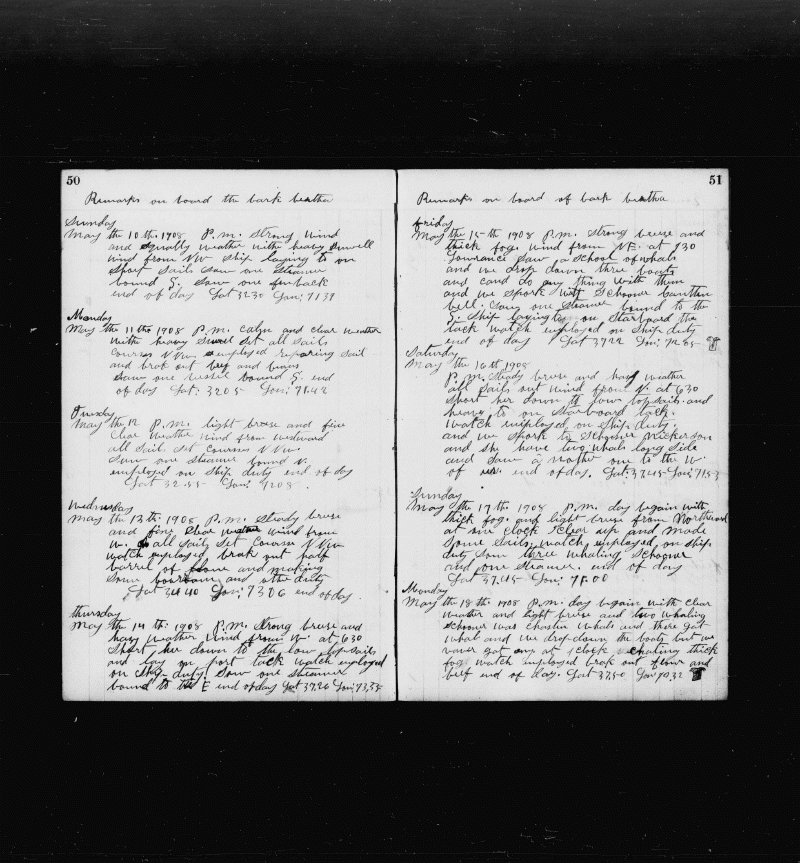 50
Remarks on board the bark bertha
Sunday
May the 10th. 1908 P.m. Strong wind
and squally weather with heavy swell
wind from NW ship laying to on
short sails saw one steamer
bound S. saw one finback
end of day Lat 3230 Lon: 7139
Monday
May the 11th 1908 P.m. calm and clear weather
with heavy swell set all sails
Courses NNw. employed reparing sail
and brok out
saw one vessel bound S. end
of day Lat: 3205 Lon: 71.42
Tuesday
May the 12 P.m. light breese and fine
Clear weather wind from westward
all sail set Courses NNw
saw one steamer bound N.
employed on ship duty end of day
Lat 32.55 Lon: 7208.
Wednesday
May the 13th. 1908 P.m. Steady breese
and fine Clear weather wind from
W. all sails set Courses NNw
watch employed brok out half
barrel of and making
some and othe duty
Lat 3440 Lon: 7306 end of day.
thursday
May the 14th. 1908 P.m. Strong breese and
hasy weather wind from W. at 630
Short her down to the low topsails
and lay on port tack watch employed
on Ship duty Saw one steamer
bound to the E end of day Lat 37,26 Lon: 73,35
51
Remarks on board of bark bertha
friday
May the 15th 1908 P.m. Strong breese and
thick fog. wind from NE. at 730
Lowrance saw a school of whals
and we drop down three boats
and cand do any thing with them
and we spork with Schooner
bell. saw one Steamer bound to the
S. Ship laying to on Starboard the
tack watch employed on Ship duty
end of day Lat 3722 Lon:
Saturday
May the 16th 1908
P.m. Steady breese and hasy weather
all sails out wind from N. at 630
Short her down to low topsails. and
heavy to on Starboard tack.
watch employed on ship duty.
and we spork to Schooner Nickerson
and she have two whals long side
and saw a nother one to the W.
of us. end of day. Lat: 37.45 Lon: 7153
Sunday
May the 17th. 1908 P.m. day begain with
thick fog. and light breese from Northward
at six clock Clear up and made
some sails. watch employed on ship.
duty Saw three whaling Schooner
and one Steamer. end of day
Lat 37.45 Lon: 71.00
Monday
May the 18th. 1908 P.m. day begain with clear
weather and light breese and two whaling
schooner was chasin whals and there got
whal and we drop down the boats but we
never got any at clock thick
fog watch employed brok out flour and
beef end of day. Lat 37,50 Lon 70,32